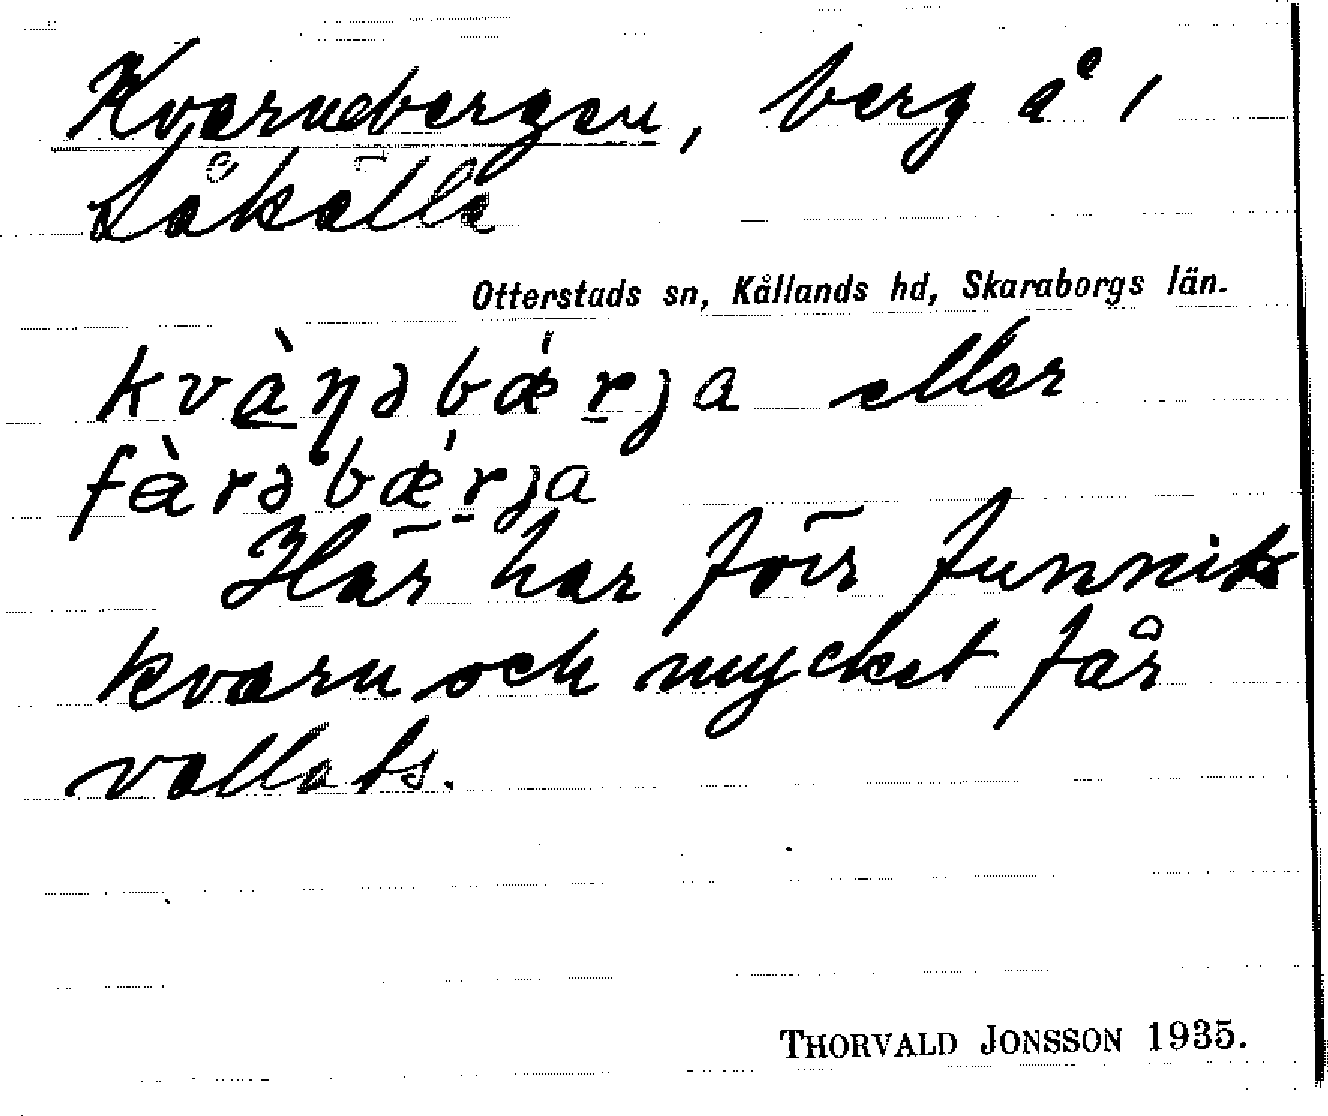 Kvarnebergen, berg å 1
Låkälla
Otterstads sn, Kållands hd, Skaraborgs län.
kvàṇəbǽrja eller
fàrəbǽrja
Här har förr funnits
kvarn och mycket får
vallats.
THORVALD JONSSON 1935.